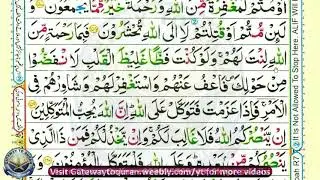 اَوْ مُتُّمْ لَمَغْفِرَةٌ مِّنَ اللّٰهِ وَرَحْمَةٌ خَيْرٌ مِّمَّا يَجْمَعُوْنَ
لَئِنْ مُّتُّمْ اَوْ قُتِلْتُمْ لَاِالَى اللّٰهِ تُحْشَرُوْنَ فَبِمَا رَحْمَةٍ مِّنَ
اللّٰهِ لِنْتَ لَهُمْ وَلَوْ كُنْتَ فَظًّا غَلِيْظَ الْقَلْبِ لَانْفَضُّوْا
مِنْ حَوْلِكَ فَاعْفُ عَنْهُمْ وَاسْتَغْفِرْ لَهُمْ وَشَاوِرْهُمْ فِى
الْاَمْرِ فَاِذَا عَزَمْتَ فَتَوَكَّلْ عَلَى اللّٰهِ اِنَّ اللّٰهَ يُحِبُّ الْمُتَوَكِّلِيْنَ
اِنْ يَّنْصُرْكُمُ اللّٰهُ فَلَا غَالِبَ لَكُمْ وَاِنْ يَّخْذُلْكُمْ فَمَنْ ذَا الَّذِىْ
Visit Gatewaytoquran.weebly.com/yt for more videos
It Is Not Allowed To Stop Here. ALIF Will